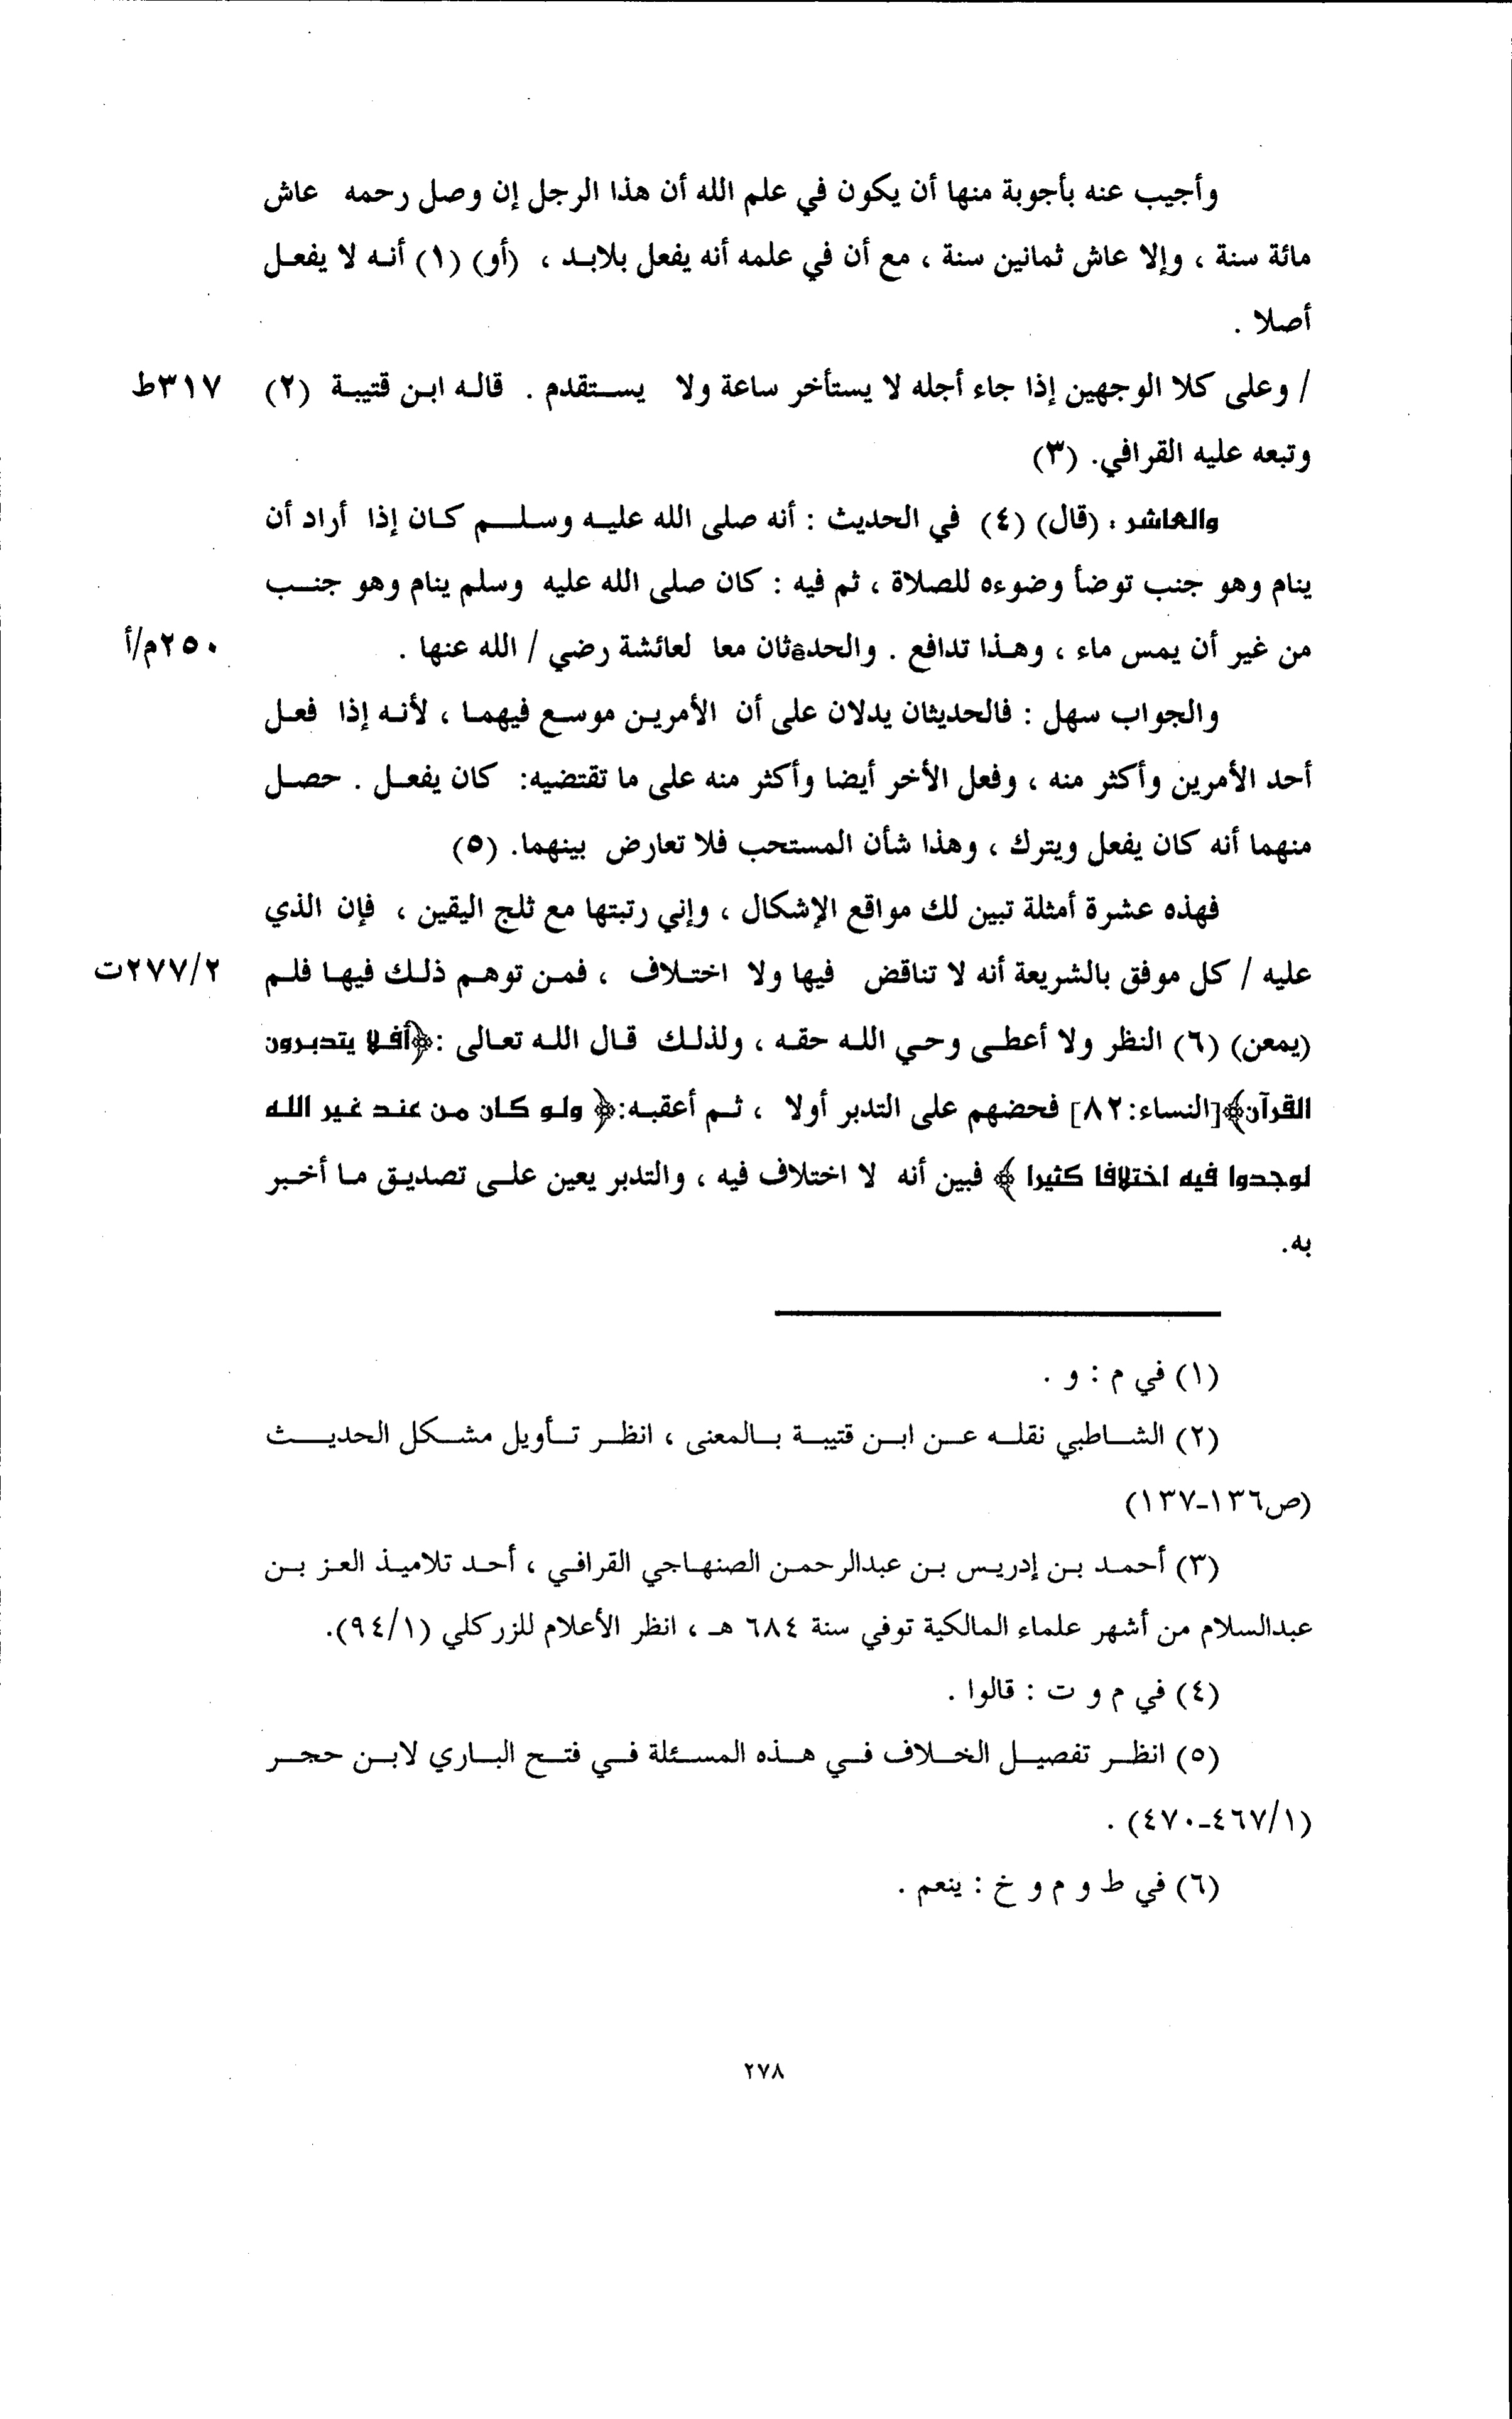 وأجيب عنه بأجوبة منها أن يكون في علم الله أن هذا الرجل إن وصل رحمه عاش
مائة سنة ، وإلا عاش ثمانين سنة ، مع أن في علمه أنه يفعل بلابد ، (أو) (١) أنه لا يفعل
أصلا .
/ وعلى كلا الوجهين إذا جاء أجله لا يستأخر ساعة ولا يستقدم . قاله ابن قتيبة (٢) ٣١٧ط
وتبعه عليه القرافي. (٣)
والعاشر : (قال) (٤) في الحديث : أنه صلى الله عليه وسلم كان إذا أراد أن
ينام وهو جنب توضأ وضوءه للصلاة ، ثم فيه : كان صلى الله عليه وسلم ينام وهو جنب
من غير أن يمس ماء ، وهذا تدافع . والحدةثان معا لعائشة رضي / الله عنها . ٢٥٠م/أ
والجواب سهل : فالحديثان يدلان على أن الأمرين موسع فيهما ، لأنه إذا فعل
أحد الأمرين وأكثر منه ، وفعل الأخر أيضا وأكثر منه على ما تقتضيه: كان يفعل . حصل
منهما أنه كان يفعل ويترك ، وهذا شأن المستحب فلا تعارض بينهما. (٥)
فهذه عشرة أمثلة تبين لك مواقع الإشكال ، وإني رتبتها مع ثلج اليقين ، فإن الذي
عليه / كل موفق بالشريعة أنه لا تناقض فيها ولا اختلاف ، فمن توهم ذلك فيها فلم ٢/٢٧٧ت
(يمعن) (٦) النظر ولا أعطى وحي الله حقه ، ولذلك قال الله تعالى :﴿أفلا يتدبرون
القرآن﴾[النساء:٨٢] فحضهم على التدبر أولا ، ثم أعقبه:﴿ ولو كان من عند غير الله
لوجدوا فيه اختلافا كثيرا ﴾ فبين أنه لا اختلاف فيه ، والتدبر يعين على تصديق ما أخبر
به.
(١) في م : و .
(٢) الشاطبي نقله عن ابن قتيبة بالمعنى ، انظر تأويل مشكل الحديث
(ص١٣٦-١٣٧)
(٣) أحمد بن إدريس بن عبدالرحمن الصنهاجي القرافي ، أحد تلاميذ العز بن
عبدالسلام من أشهر علماء المالكية توفي سنة ٦٨٤ هـ ، انظر الأعلام للزركلي (٩٤/١).
(٤) في م و ت : قالوا .
(٥) انظر تفصيل الخلاف في هذه المسئلة في فتح الباري لابن حجر
(١/٤٦٧-٤٧٠) .
(٦) في ط و م و خ : ينعم .
٢٧٨